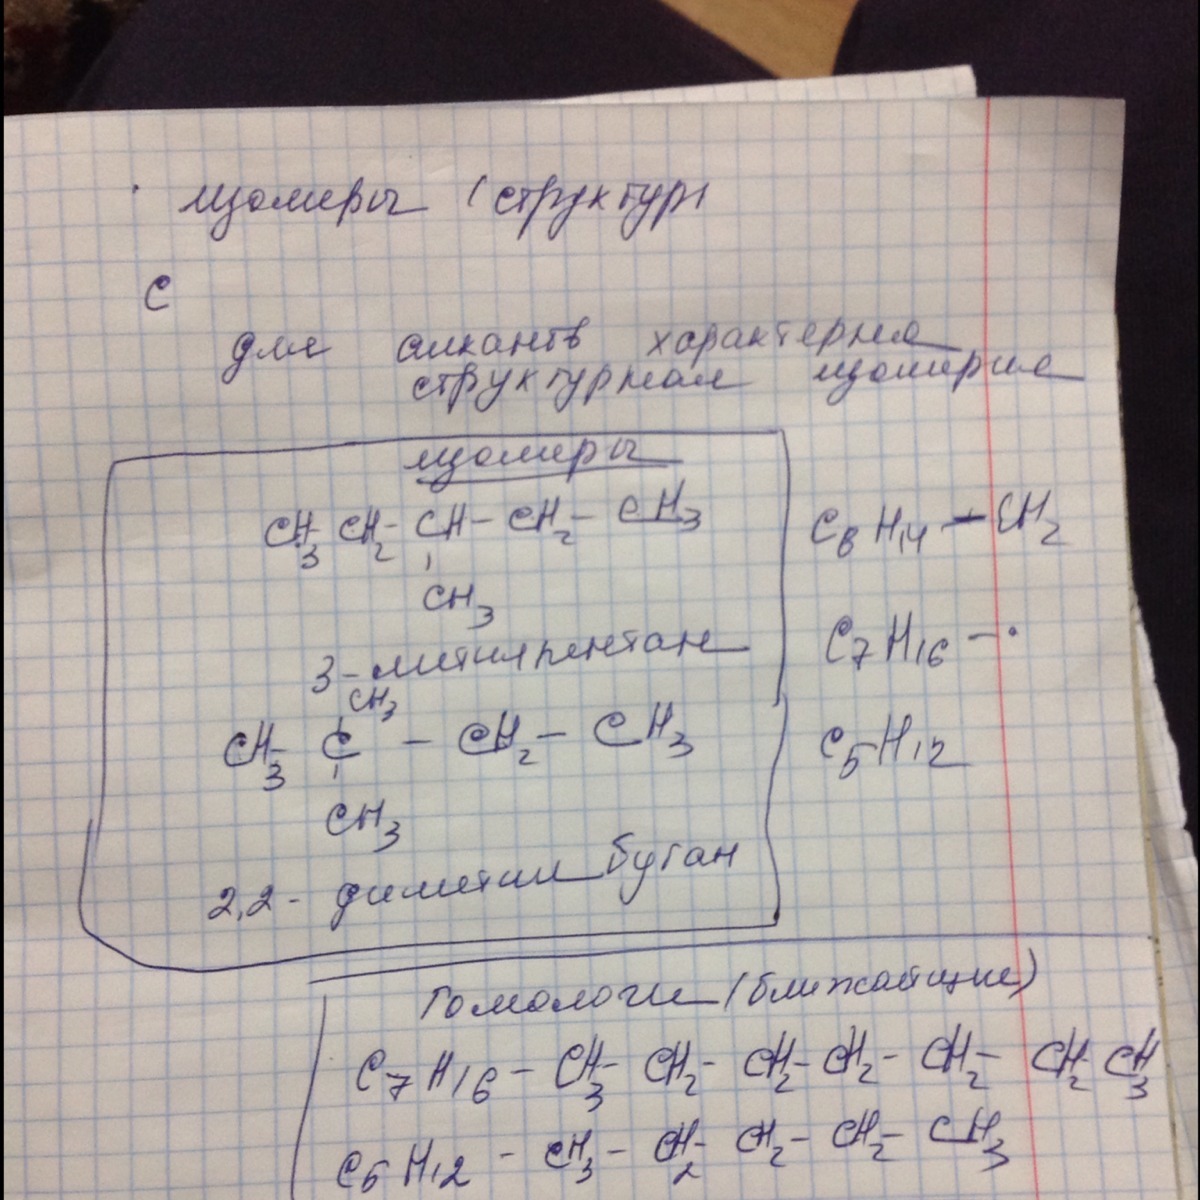 изомеры (структур
С
для алканов характерна
структурная изомерия
изомеры
CH3 CH2- CH- CH2- CH3
CH3
3-метилпентан
CH3
CH3- C - CH2- CH3
CH3
2,2- диметилбутан
C6H14 - CH2
C7H16 -
C5H12
Гомологи (ближайшие)
C7H16 - CH3- CH2- CH2- CH2- CH2- CH2- CH3
C5H12 - CH3- CH2- CH2- CH2- CH3